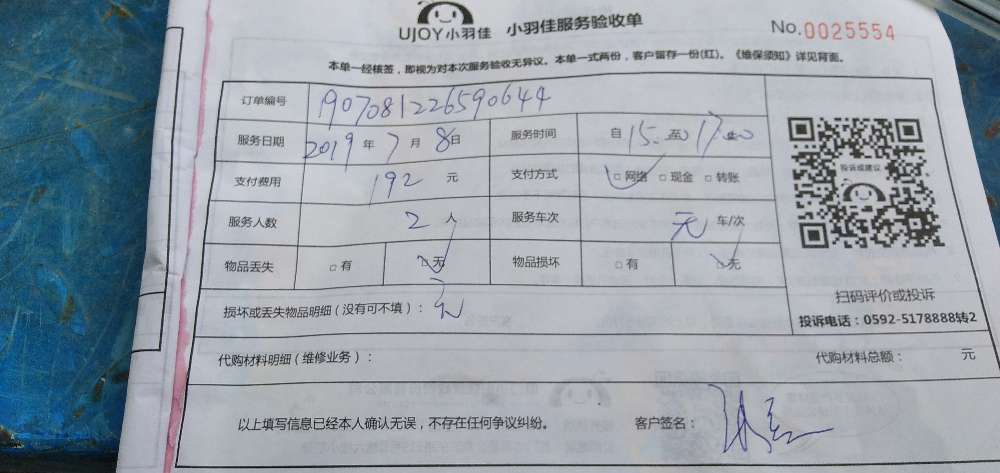 UJOY小羽佳 小羽佳服务验收单 No.0025554
本单一经核签，即视为对本次服务验收无异议。本单一式两份，客户留存一份(红)。《维保须知》详见背面。
订单编号 1907081226590644
服务日期 2019年7月8日 服务时间 自15:00至17:00
支付费用 192元 支付方式 □网络 □现金 □转账
服务人数 2人 服务车次 无 车/次
物品丢失 □有 □无 物品损坏 □有 □无
投诉或建议
扫码评价或投诉
投诉电话：0592-5178888转2
损坏或丢失物品明细（没有可不填）：无
代购材料明细（维修业务）： 代购材料总额： 元
以上填写信息已经本人确认无误，不存在任何争议纠纷。 客户签名：